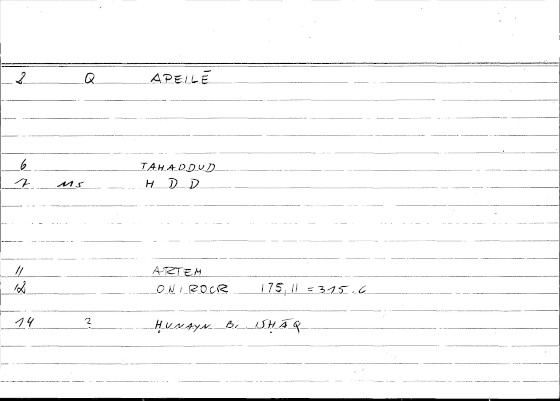 2 Q APEILĒ
6 TAHADDUD
7 MS H D D
11 ARTEM
12 ONIROCR 175,11 = 315.6
14 ? ḤUNAYN B. ISḤĀQ